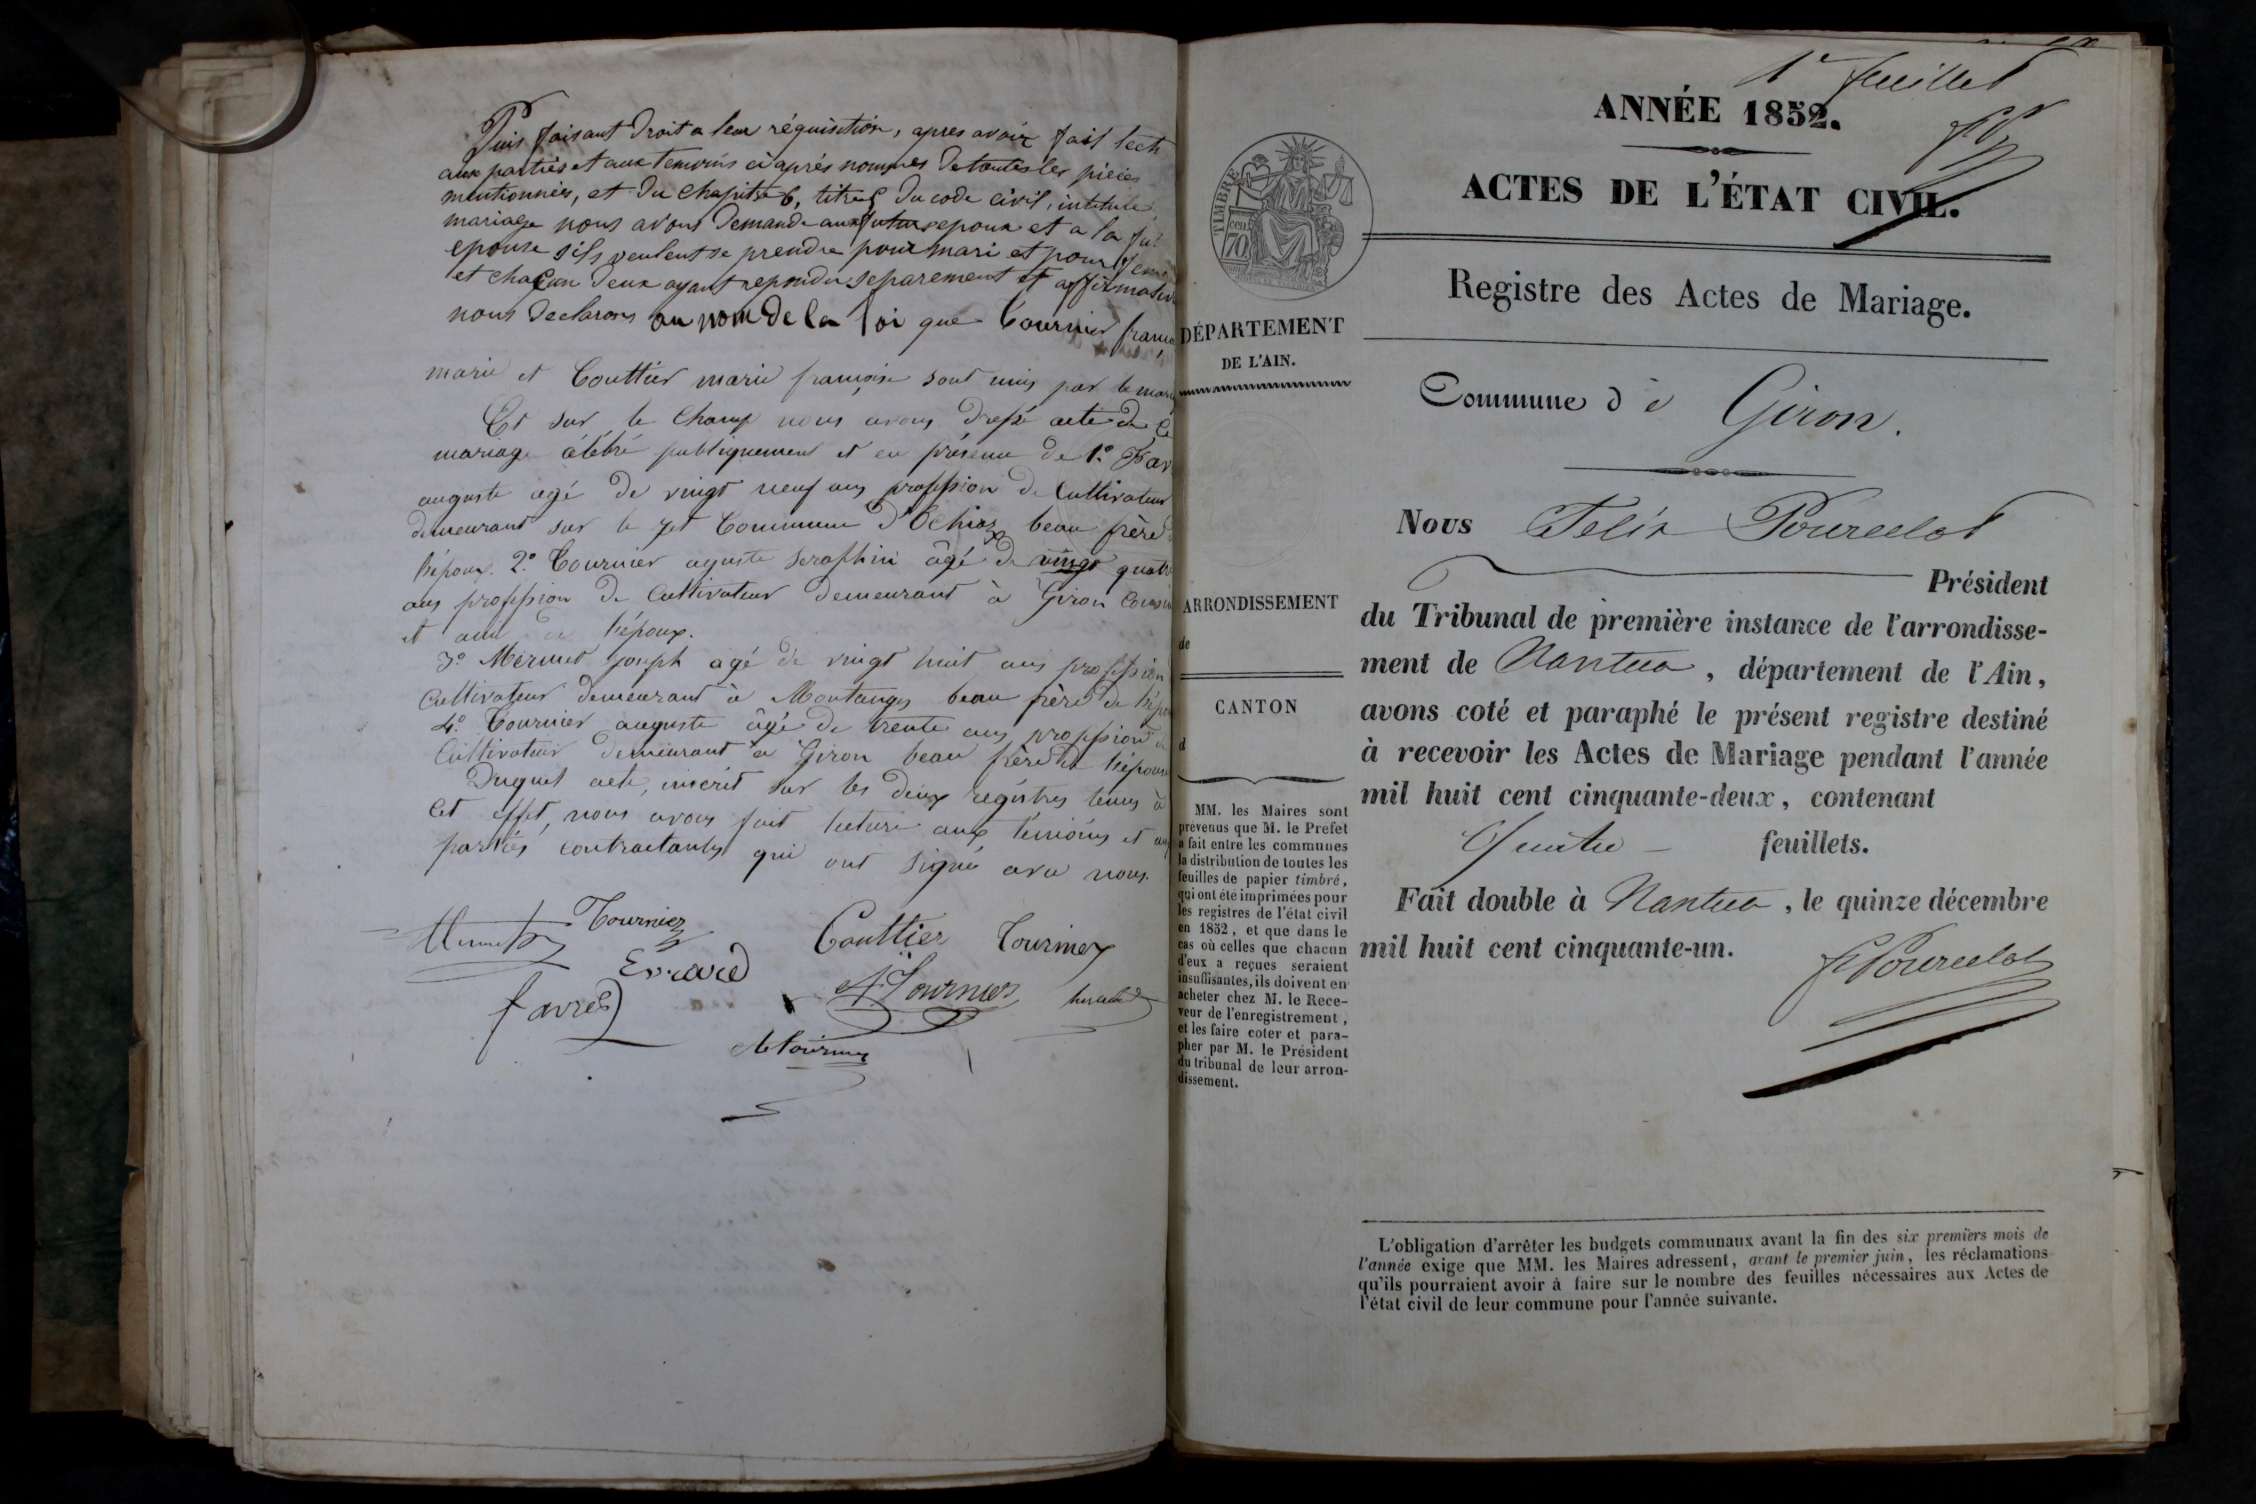 Puis faisant droit a leur réquisition, apres avoir fait lect
aux parties et aux temoins ci après nommés de toutes les pièces
mentionnées, et du chapitre 6, titre 5 du code civil, intitulé
mariage nous avons demandé aux futurs epoux et a la fut
epouse s'ils veulent se prendre pour mari et pour fem
et chaqun deux ayant repondu separement et affirmativ
nous declarons au nom de la loi que Tournier franço
marie et Gouttier marie françoise sont unis par le maria
Et sur le champ nous avons dressé acte de ce
mariage célébré publiquement et en présence de 1.° Favr
auguste agé de vingt neuf ans profession de Cultivateur
demeurant sur le jet Commune d'Ochiaz beau frère
l'époux. 2.° Tournier aguste seraphin âgé de vingt quatr
ans profession de Cultivateur demeurant à Giron Cousin
et ami de l'époux.
3.° Mermet joseph agé de vingt huit ans profession
Cultivateur demeurant à Montanges beau frère de l'épou
4.° Tournier auguste âgé de trente ans profession de
Cultivateur demeurant à Giron beau frère de l'épouse
Duquel acte, inscrit sur les deux régistres tenus à
cet effet, nous avons fait lecture aux témoins et aux
parties contractantes qui ont signé avec nous.
Tournier
Gouttier Tournier
Evrard
A. Tournier
favre
1er feuillet
ANNÉE 1852.
ACTES DE L'ÉTAT CIVIL.
Registre des Actes de Mariage.
TIMBRE
70 cen
DÉPARTEMENT
DE L'AIN.
Commune de Giron.
Nous Felix Pourcelot
Président
du Tribunal de première instance de l'arrondisse-
ment de Nantua, département de l'Ain,
avons coté et paraphé le présent registre destiné
à recevoir les Actes de Mariage pendant l'année
mil huit cent cinquante-deux, contenant
Quatre feuillets.
Fait double à Nantua, le quinze décembre
mil huit cent cinquante-un.
F Pourcelot
ARRONDISSEMENT
de
CANTON
d
MM. les Maires sont
prévenus que M. le Prefet
a fait entre les communes
la distribution de toutes les
feuilles de papier timbré,
qui ont été imprimées pour
les registres de l'état civil
en 1852, et que dans le
cas où celles que chacun
d'eux a reçues seraient
insuffisantes, ils doivent en
acheter chez M. le Rece-
veur de l'enregistrement,
et les faire coter et para-
pher par M. le Président
du tribunal de leur arron-
dissement.
L'obligation d'arrêter les budgets communaux avant la fin des six premiers mois de
l'année exige que MM. les Maires adressent, avant le premier juin, les réclamations
qu'ils pourraient avoir à faire sur le nombre des feuilles nécessaires aux Actes de
l'état civil de leur commune pour l'année suivante.